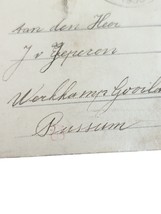 aan den Heer
J v Ieperen
Werkkamp Gooila
Bussum